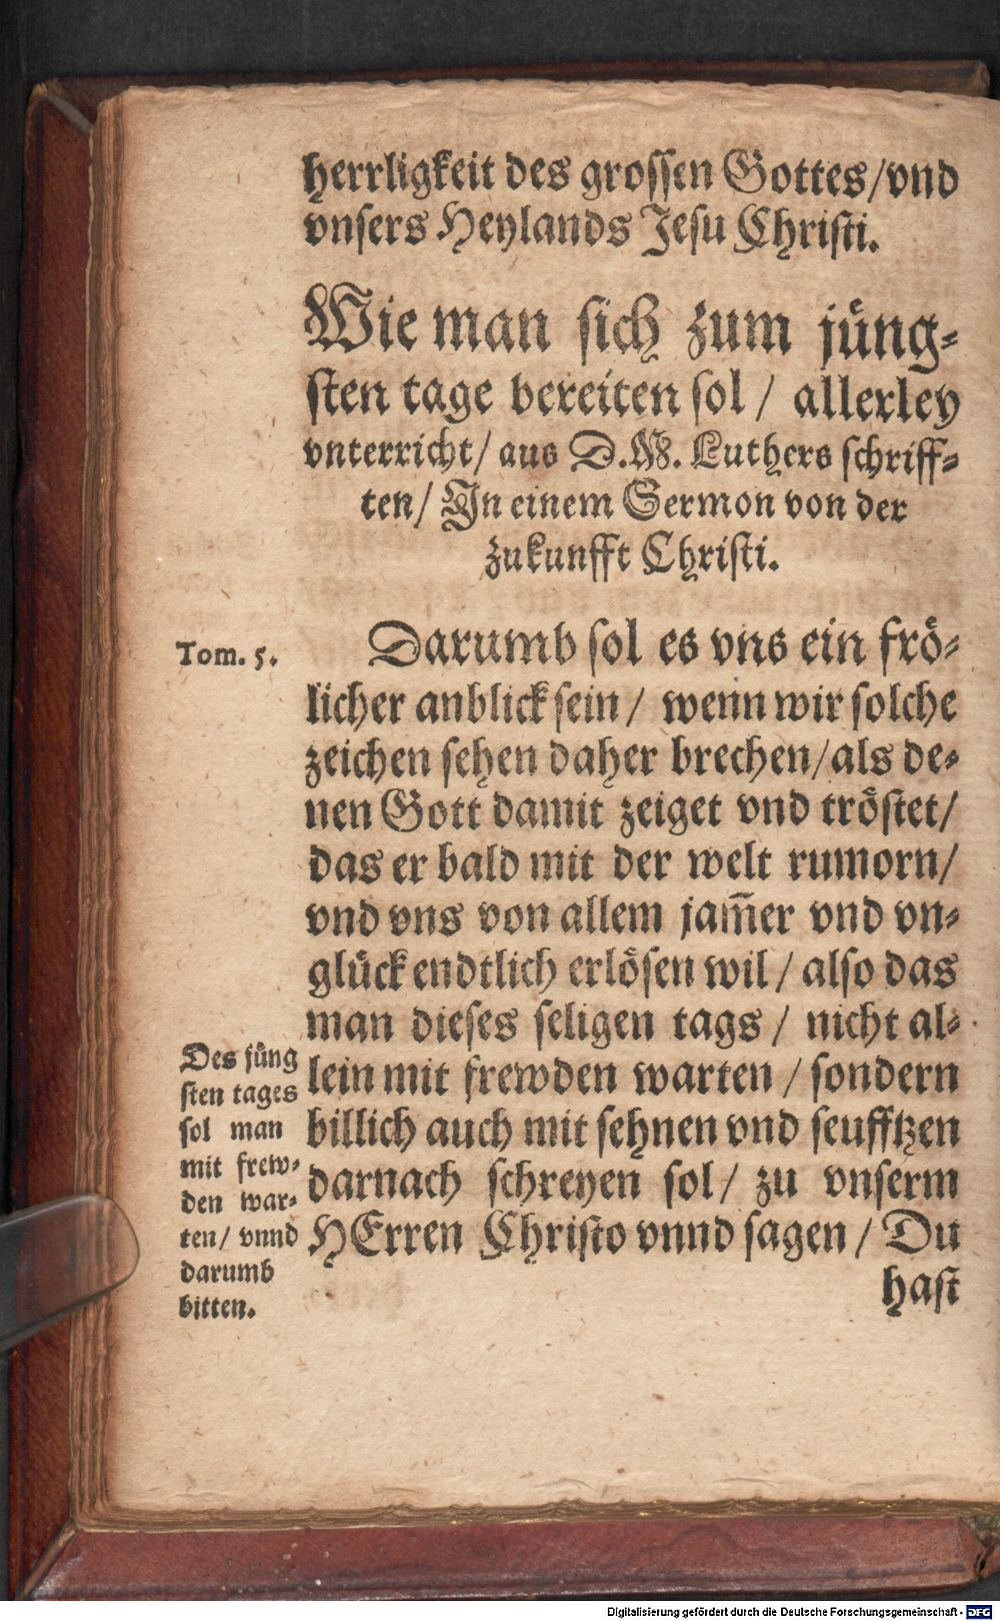 herrligkeit des grossen Gottes/vnd
vnsers Heylands Jesu Christi.
Wie man sich zum jüng-
sten tage bereiten sol / allerley
vnterricht/ aus D.M. Luthers schriff-
ten/ In einem Sermon von der
zukunfft Christi.
Tom. 5.
Darumb sol es vns ein frö-
licher anblick sein / wenn wir solche
zeichen sehen daher brechen/als de-
nen Gott damit zeiget vnd tröstet/
das er bald mit der welt rumorn/
vnd vns von allem jam̅er vnd vn-
glück endtlich erlösen wil / also das
man dieses seligen tags / nicht al-
lein mit frewden warten / sondern
billich auch mit sehnen vnd seufftzen
darnach schreyen sol/ zu vnserm
HErren Christo vnnd sagen / Du
hast
Des jüng
sten tages
sol man
mit frew-
den war-
ten/ vnnd
darumb
bitten.
Digitalisierung gefördert durch die Deutsche Forschungsgemeinschaft - DFG